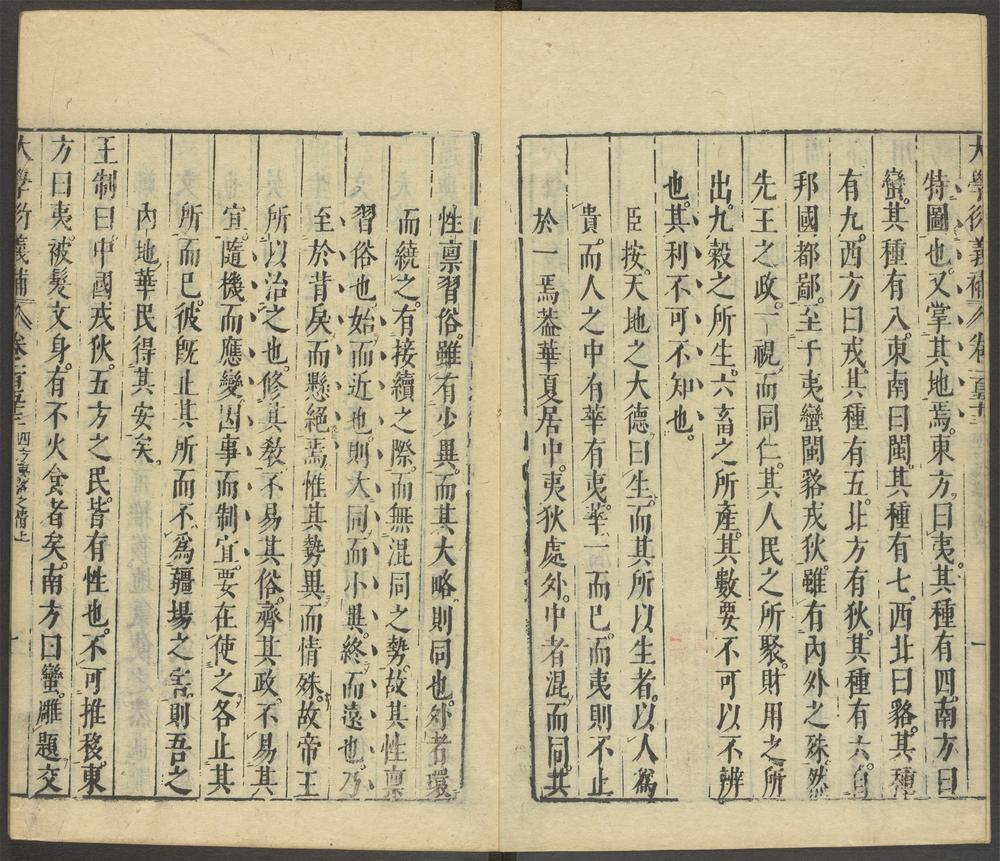 大學衍義補 卷一百五十三
特圖也又掌其地焉東方曰夷其種有四南方曰
蠻其種有八東南曰閩其種有七西北曰貉其種
有九西方曰戎其種有五北方有狄其種有六自
邦國都鄙至于夷蠻閩貉戎狄雖有內外之殊然
先王之政一視而同仁其人民之所聚財用之所
出九穀之所生六畜之所產其數要不可以不辨
也其利不可不知也
臣按天地之大德曰生而其所以生者以人爲
貴而人之中有華有夷華一而已而夷則不止
於一焉葢華夏居中夷狄處外中者混而同其
性禀習俗雖有少異而其大略則同也外者環
而繞之有接續之際而無混同之勢故其性禀
習俗也始而近也則大同而小異終而遠也乃
至於背戾而懸絕焉惟其勢異而情殊故帝王
所以治之也修其敎不易其俗齊其政不易其
宜隨機而應變因事而制宜要在使之各止其
所而已彼既止其所而不爲疆場之害則吾之
內地華民得其安矣
王制曰中國戎狄五方之民皆有性也不可推移東
方曰夷被髮文身有不火食者矣南方曰蠻雕題交
大學衍義補 卷一百五十三 四方夷落之情上